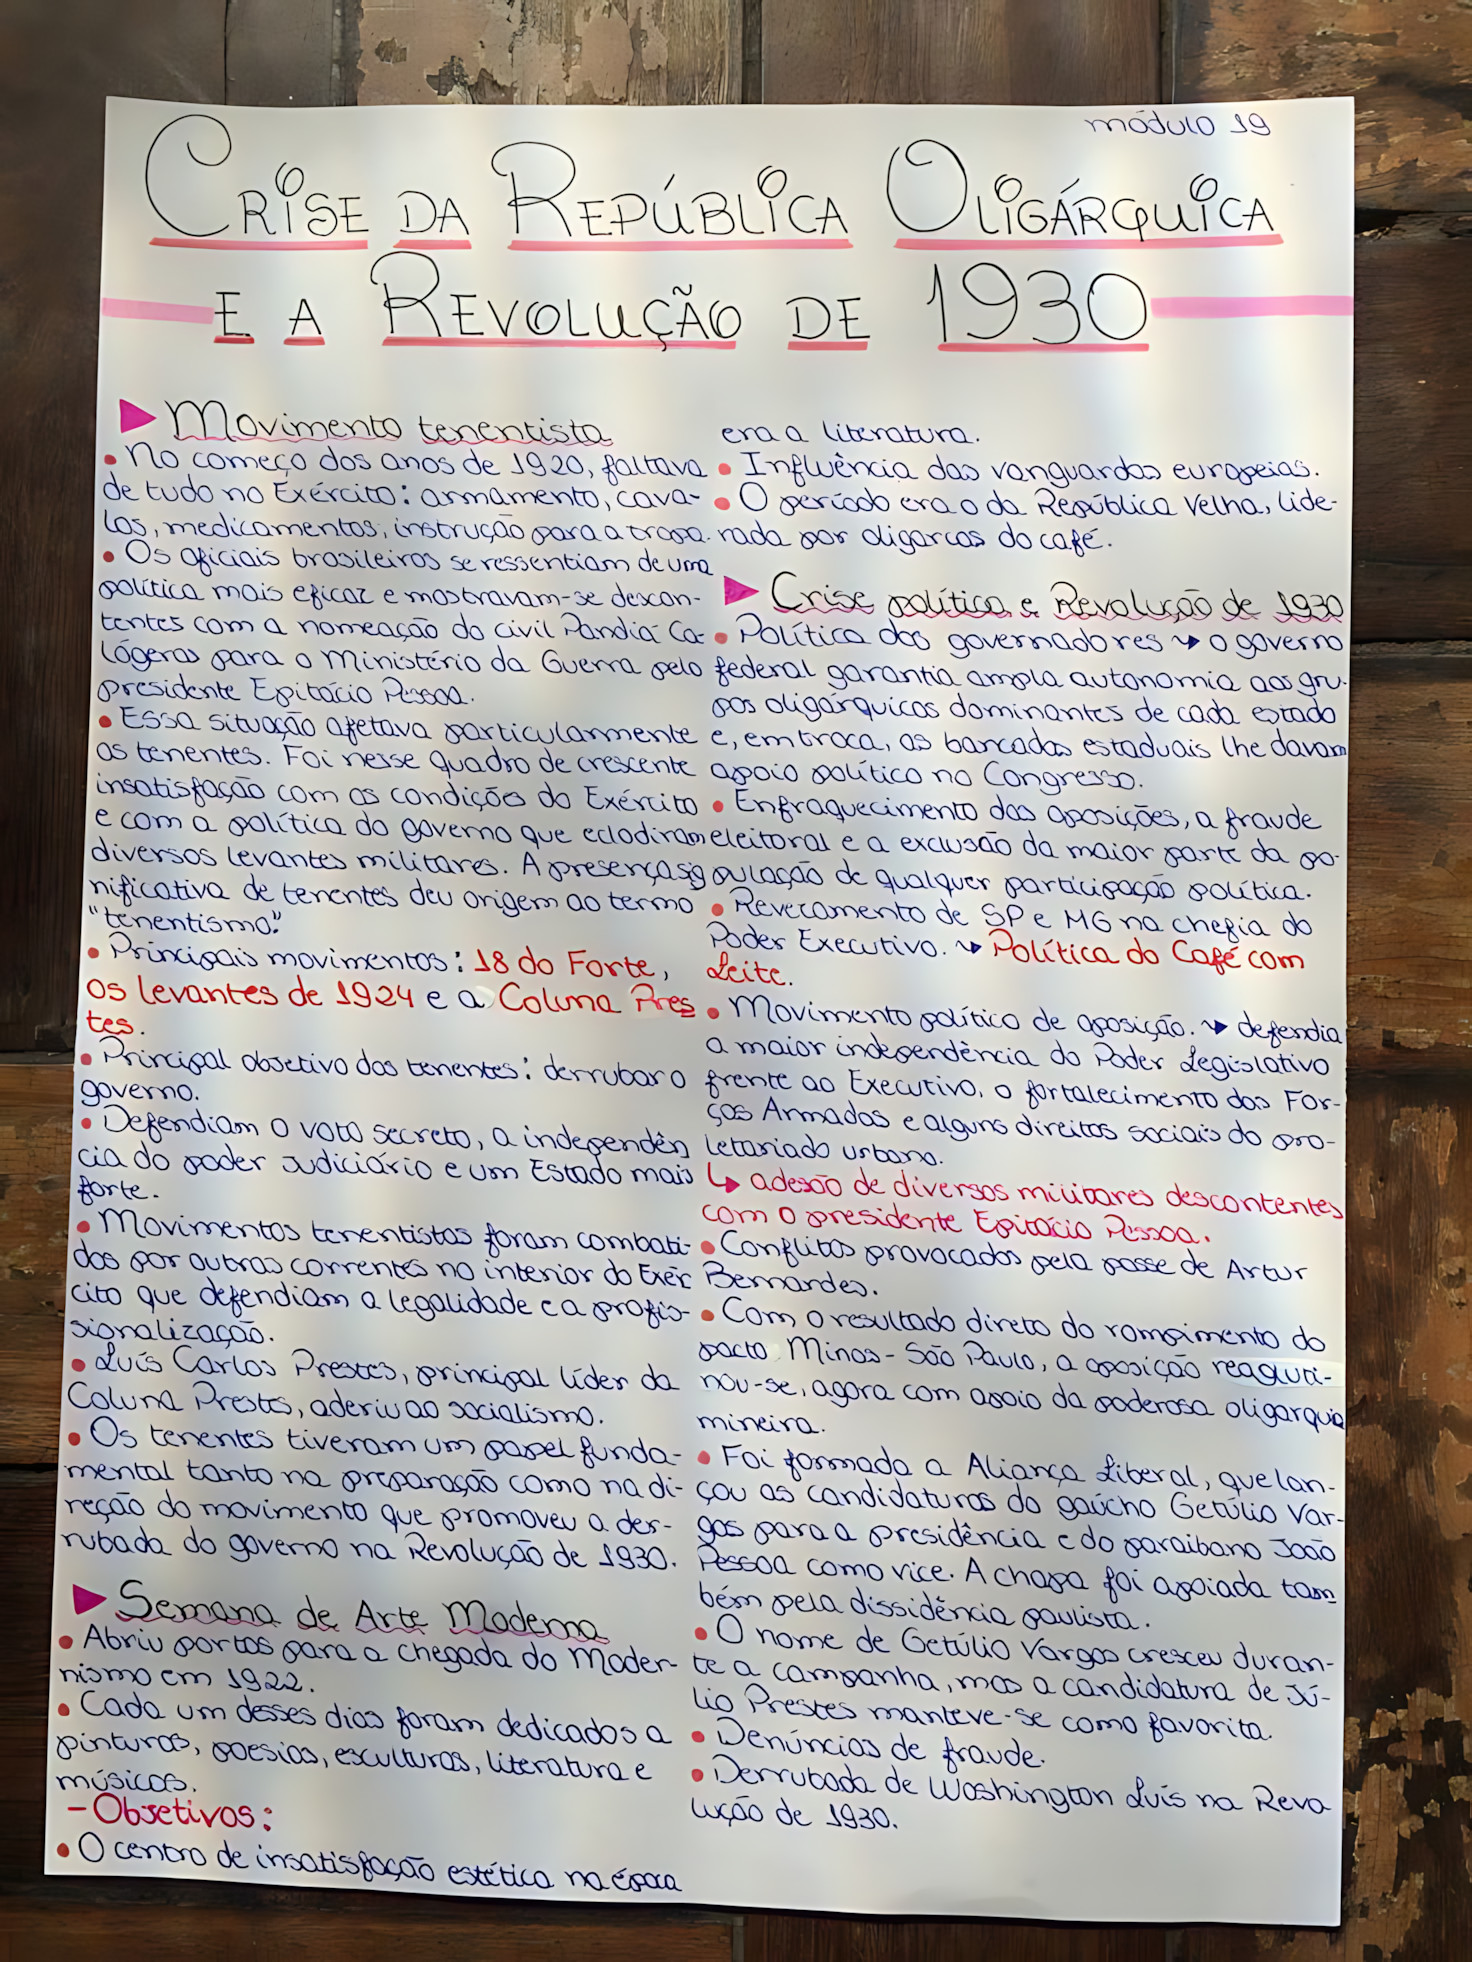 módulo 19
CRISE DA REPÚBLICA OLIGÁRQUICA
E A REVOLUÇÃO DE 1930
Movimento tenentista
• No começo dos anos de 1920, faltava
de tudo no Exército: armamento, cava-
los, medicamentos, instrução para a tropa.
• Os oficiais brasileiros se ressentiam de uma
política mais eficaz e mostravam-se descon-
tentes com a nomeação do civil Pandiá Ca-
lógeras para o Ministério da Guerra pelo
presidente Epitácio Pessoa.
• Essa situação afetava particularmente
os tenentes. Foi nesse quadro de crescente
insatisfação com as condições do Exército
e com a política do governo que eclodiram
diversos levantes militares. A presença sig
nificativa de tenentes deu origem ao termo
"tenentismo".
• Principais movimentos: 18 do Forte,
os levantes de 1924 e a Coluna Pres
tes.
• Principal objetivo dos tenentes: derrubar o
governo.
• Defendiam o voto secreto, a independên
cia do poder judiciário e um Estado mais
forte.
• Movimentos tenentistas foram combati-
dos por outras correntes no interior do Exér
cito que defendiam a legalidade e a profis-
sionalização.
• Luís Carlos Prestes, principal líder da
Coluna Prestes, aderiu ao socialismo.
• Os tenentes tiveram um papel funda-
mental tanto na preparação como na di-
reção do movimento que promoveu a der-
rubada do governo na Revolução de 1930.
Semana de Arte Moderna
• Abriu portas para a chegada do Moder-
nismo em 1922.
• Cada um desses dias foram dedicados a
pinturas, poesias, esculturas, literatura e
músicas.
- Objetivos:
• O centro de insatisfação estética na época
era a literatura.
• Influência das vanguardas europeias.
• O período era o da República Velha, lide-
rada por oligarcas do café.
Crise política e Revolução de 1930
• Política dos governadores → o governo
federal garantia ampla autonomia aos gru-
pos oligárquicos dominantes de cada estado
e, em troca, as bancadas estaduais lhe davam
apoio político no Congresso.
• Enfraquecimento das oposições, a fraude
eleitoral e a exclusão da maior parte da po-
pulação de qualquer participação política.
• Revezamento de SP e MG na chefia do
Poder Executivo. → Política do Café com
Leite.
• Movimento político de oposição. → defendia
a maior independência do Poder Legislativo
frente ao Executivo, o fortalecimento das For-
ças Armadas e alguns direitos sociais do pro-
letariado urbano.
↳ adesão de diversos militares descontentes
com o presidente Epitácio Pessoa.
• Conflitos provocados pela posse de Artur
Bernardes.
• Com o resultado direto do rompimento do
pacto Minas-São Paulo, a oposição reagluti-
nou-se, agora com apoio da poderosa oligarquia
mineira.
• Foi formada a Aliança Liberal, que lan-
çou as candidaturas do gaúcho Getúlio Var-
gas para a presidência e do paraibano João
Pessoa como vice. A chapa foi apoiada tam
bém pela dissidência paulista.
• O nome de Getúlio Vargas cresceu duran-
te a campanha, mas a candidatura de Jú-
lio Prestes manteve-se como favorita.
• Denúncias de fraude.
• Derrubada de Washington Luís na Revo
lução de 1930.